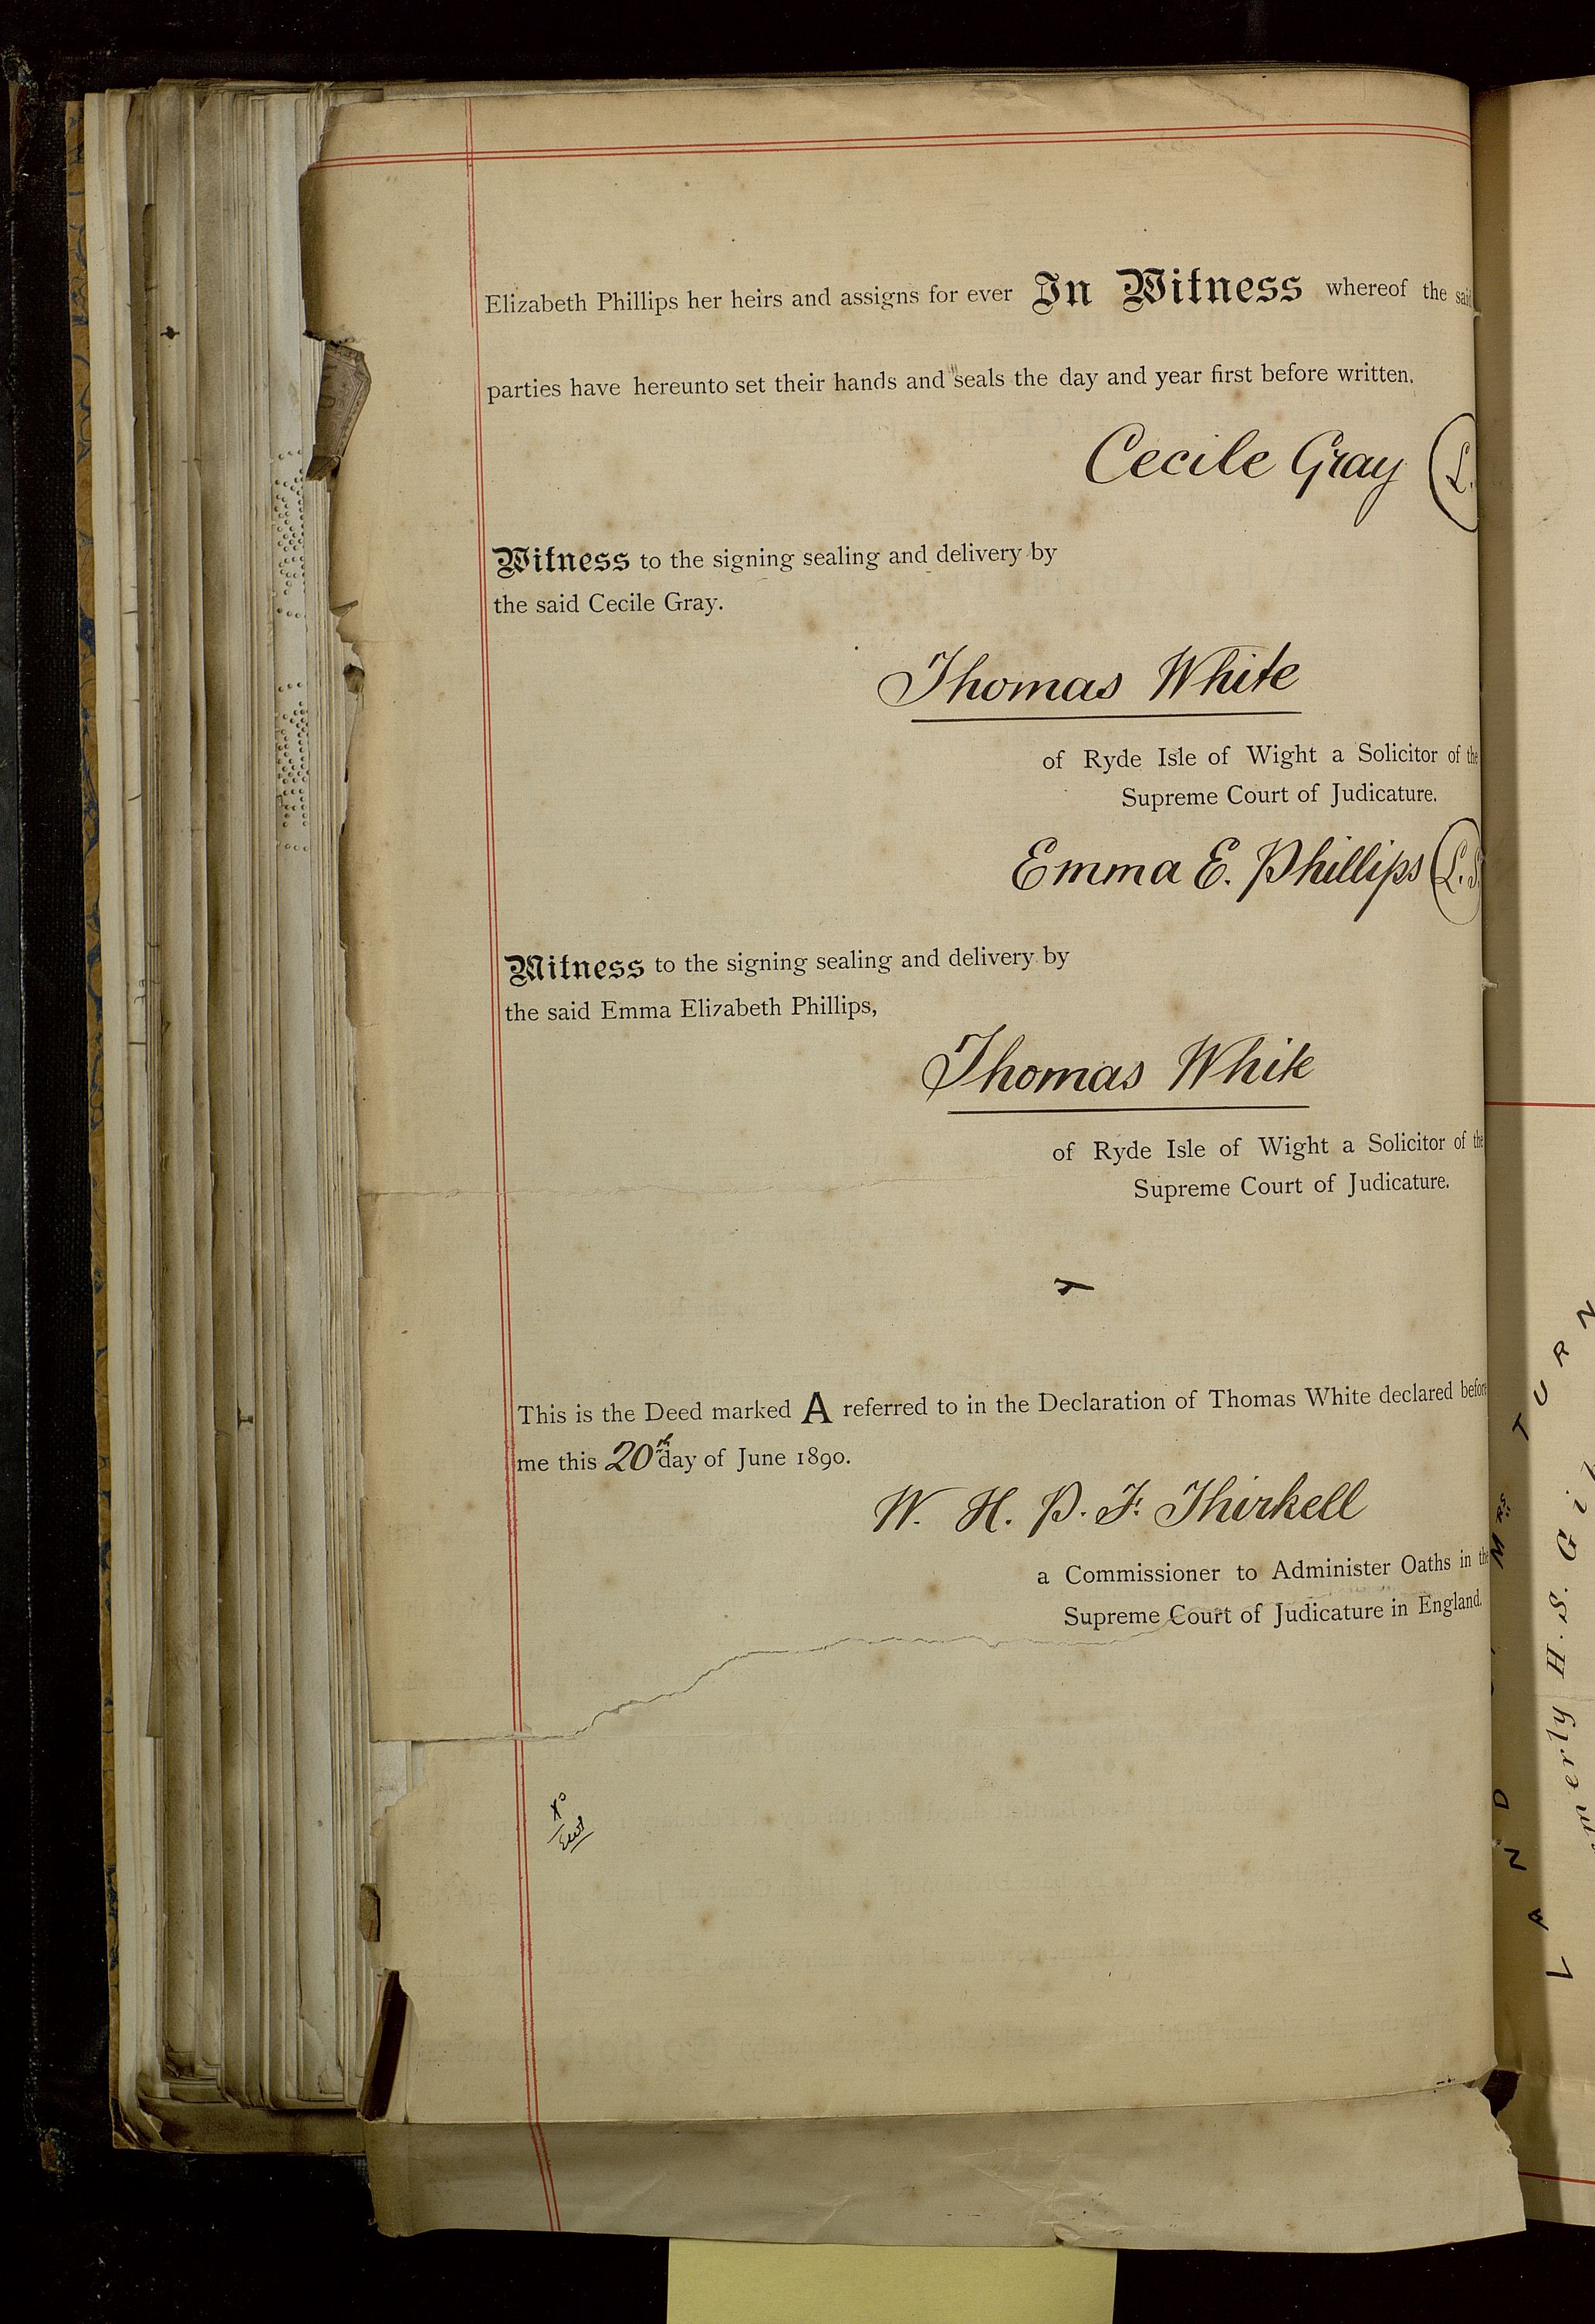 Elizabeth Phillips her heirs and assigns for ever In Witness whereof the said
parties have hereunto set their hands and seals the day and year first before written.
Cecile Gray (L.
Witness to the signing sealing and delivery by
the said Cecile Gray.
Thomas White
of Ryde Isle of Wight a Solicitor of the
Supreme Court of Judicature.
Emma E. Phillips (L.S.
Witness to the signing sealing and delivery by
the said Emma Elizabeth Phillips,
Thomas White
of Ryde Isle of Wight a Solicitor of the
Supreme Court of Judicature.
This is the Deed marked A referred to in the Declaration of Thomas White declared before
me this 20th day of June 1890.
W. H. P. F. Thirkell
a Commissioner to Administer Oaths in the
Supreme Court of Judicature in England.
TURN
Mrs.
LAND
merly H. S. Gi